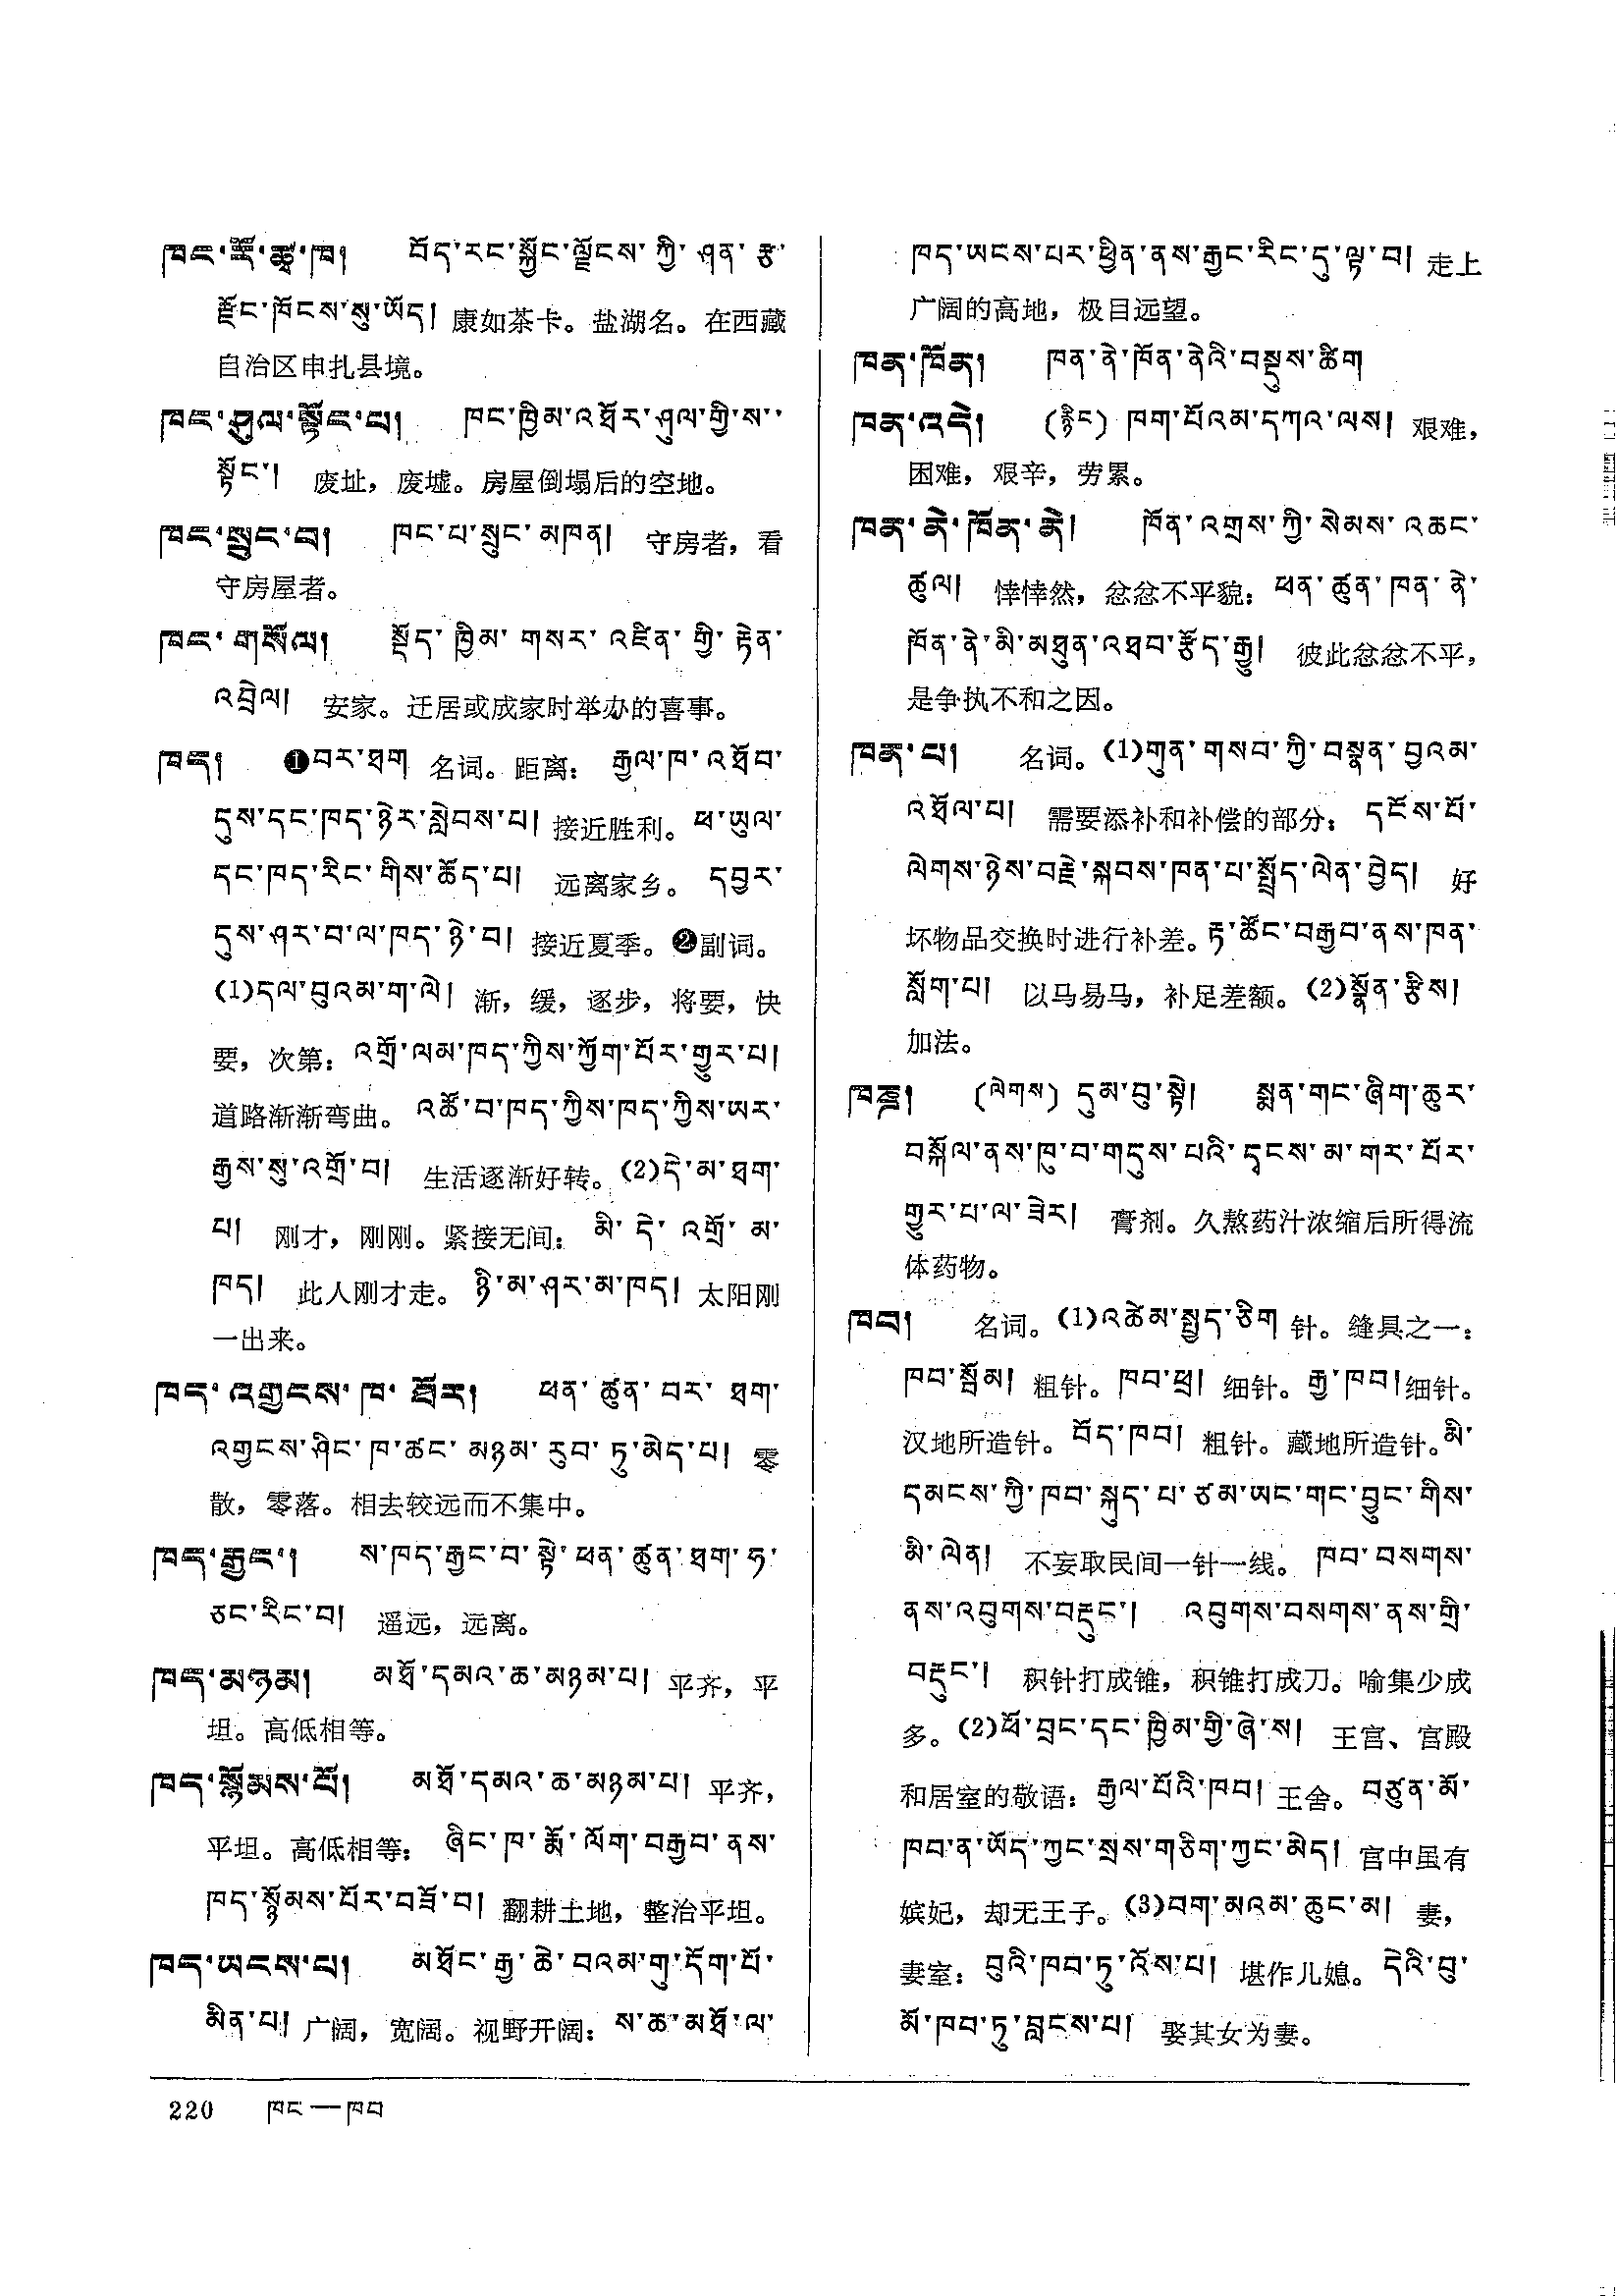 ཁང་རོ་ཚྭ་ཁ།  བོད་རང་སྐྱོང་ལྗོངས་ཀྱི་ཤན་རྩ་
རྫོང་ཁོངས་སུ་ཡོད། 康如茶卡。盐湖名。在西藏
自治区申扎县境。
ཁང་ཤུལ་སྟོང་པ།  ཁང་ཁྱིམ་འཐོར་ཤུལ་གྱི་ས་
སྟོང་། 废址，废墟。房屋倒塌后的空地。
ཁང་སྲུང་བ།  ཁང་པ་སྲུང་མཁན། 守房者，看
守房屋者。
ཁང་གསོལ།  སྡོད་ཁྱིམ་གསར་འཛིན་གྱི་རྟེན་
འབྲེལ། 安家。迁居或成家时举办的喜事。
ཁད།  ❶བར་ཐག 名词。距离：རྒྱལ་ཁ་འཐོབ་
དུས་དང་ཁད་ཉེར་སླེབས་པ། 接近胜利。ཕ་ཡུལ་
དང་ཁད་རིང་གིས་ཆོད་པ། 远离家乡。དབྱར་
དུས་ཤར་བ་ལ་ཁད་ཉེ་བ། 接近夏季。❷副词。
(1)དལ་བུའམ་ག་ལེ། 渐，缓，逐步，将要，快
要，次第：འགྲོ་ལམ་ཁད་ཀྱིས་ཀྱོག་པོར་གྱུར་པ།
道路渐渐弯曲。འཚོ་བ་ཁད་ཀྱིས་ཁད་ཀྱིས་ཡར་
རྒྱས་སུ་འགྲོ་བ། 生活逐渐好转。(2)དེ་མ་ཐག་
པ། 刚才，刚刚。紧接无间：མི་དེ་འགྲོ་མ་
ཁད། 此人刚才走。ཉི་མ་ཤར་མ་ཁད། 太阳刚
一出来。
ཁད་འགྱངས་ཁ་ཐོར།  ཕན་ཚུན་བར་ཐག་
འགྱངས་ཤིང་ཁ་ཚང་མཉམ་རུབ་ཏུ་མེད་པ། 零
散，零落。相去较远而不集中。
ཁད་རྒྱང་།  ས་ཁད་རྒྱང་བ་སྟེ་ཕན་ཚུན་ཐག་ཧ་
ཅང་རིང་བ། 遥远，远离。
ཁད་མཉམ།  མཐོ་དམའ་ཆ་མཉམ་པ། 平齐，平
坦。高低相等。
ཁད་སྙོམས་པོ།  མཐོ་དམའ་ཆ་མཉམ་པ། 平齐，
平坦。高低相等：ཞིང་ཁ་རྨོ་ལོག་བརྒྱབ་ནས་
ཁད་སྙོམས་པོར་བཟོ་བ། 翻耕土地，整治平坦。
ཁད་ཡངས་པ།  མཐོང་རྒྱ་ཆེ་བའམ་གུ་དོག་པོ་
མིན་པ། 广阔，宽阔。视野开阔：ས་ཆ་མཐོ་ལ་
ཁད་ཡངས་པར་ཕྱིན་ནས་རྒྱང་རིང་དུ་ལྟ་བ། 走上
广阔的高地，极目远望。
ཁན་ཁོན།  ཁན་ནེ་ཁོན་ནེའི་བསྡུས་ཚིག
ཁན་འདེ།  (རྙིང) ཁག་པོའམ་དཀའ་ལས། 艰难，
困难，艰辛，劳累。
ཁན་ནེ་ཁོན་ནེ།  ཁོན་འགྲས་ཀྱི་སེམས་འཆང་
ཚུལ། 悻悻然，忿忿不平貌：ཕན་ཚུན་ཁན་ནེ་
ཁོན་ནེ་མི་མཐུན་འཐབ་རྩོད་རྒྱུ། 彼此忿忿不平，
是争执不和之因。
ཁན་པ།  名词。(1)གུན་གསབ་ཀྱི་བསྣན་བྱའམ་
འཐོལ་པ། 需要添补和补偿的部分：དངོས་པོ་
ལེགས་ཉེས་བརྗེ་སྐབས་ཁན་པ་སྤྲོད་ལེན་བྱེད། 好
坏物品交换时进行补差。རྟ་ཚོང་བརྒྱབ་ནས་ཁན་
སློག་པ། 以马易马，补足差额。(2)སྣོན་རྩིས།
加法。
ཁནྜ།  (ལེགས) དུམ་བུ་སྟེ། སྨན་གང་ཞིག་ཆུར་
བསྐོལ་ནས་ཁུ་བ་གདུས་པའི་དྭངས་མ་གར་པོར་
གྱུར་པ་ལ་ཟེར། 膏剂。久熬药汁浓缩后所得流
体药物。
ཁབ།  名词。(1)འཚེམ་སྤྱད་ཅིག 针。缝具之一：
ཁབ་སྦོམ། 粗针。ཁབ་ཕྲ། 细针。རྒྱ་ཁབ། 细针。
汉地所造针。བོད་ཁབ། 粗针。藏地所造针。མི་
དམངས་ཀྱི་ཁབ་སྐུད་པ་ཙམ་ཡང་གང་བྱུང་གིས་
མི་ལེན། 不妄取民间一针一线。ཁབ་བསགས་
ནས་འབུགས་བརྡུང་། འབུགས་བསགས་ནས་གྲི་
བརྡུང་། 积针打成锥，积锥打成刀。喻集少成
多。(2)ཕོ་བྲང་དང་ཁྱིམ་གྱི་ཞེ་ས། 王宫、宫殿
和居室的敬语：རྒྱལ་པོའི་ཁབ། 王舍。བཙུན་མོ་
ཁབ་ན་ཡོད་ཀྱང་སྲས་གཅིག་ཀྱང་མེད། 宫中虽有
嫔妃，却无王子。(3)བག་མའམ་ཆུང་མ། 妻，
妻室：བུའི་ཁབ་ཏུ་འོས་པ། 堪作儿媳。དེའི་བུ་
མོ་ཁབ་ཏུ་བླངས་པ། 娶其女为妻。
220 ཁང—ཁབ